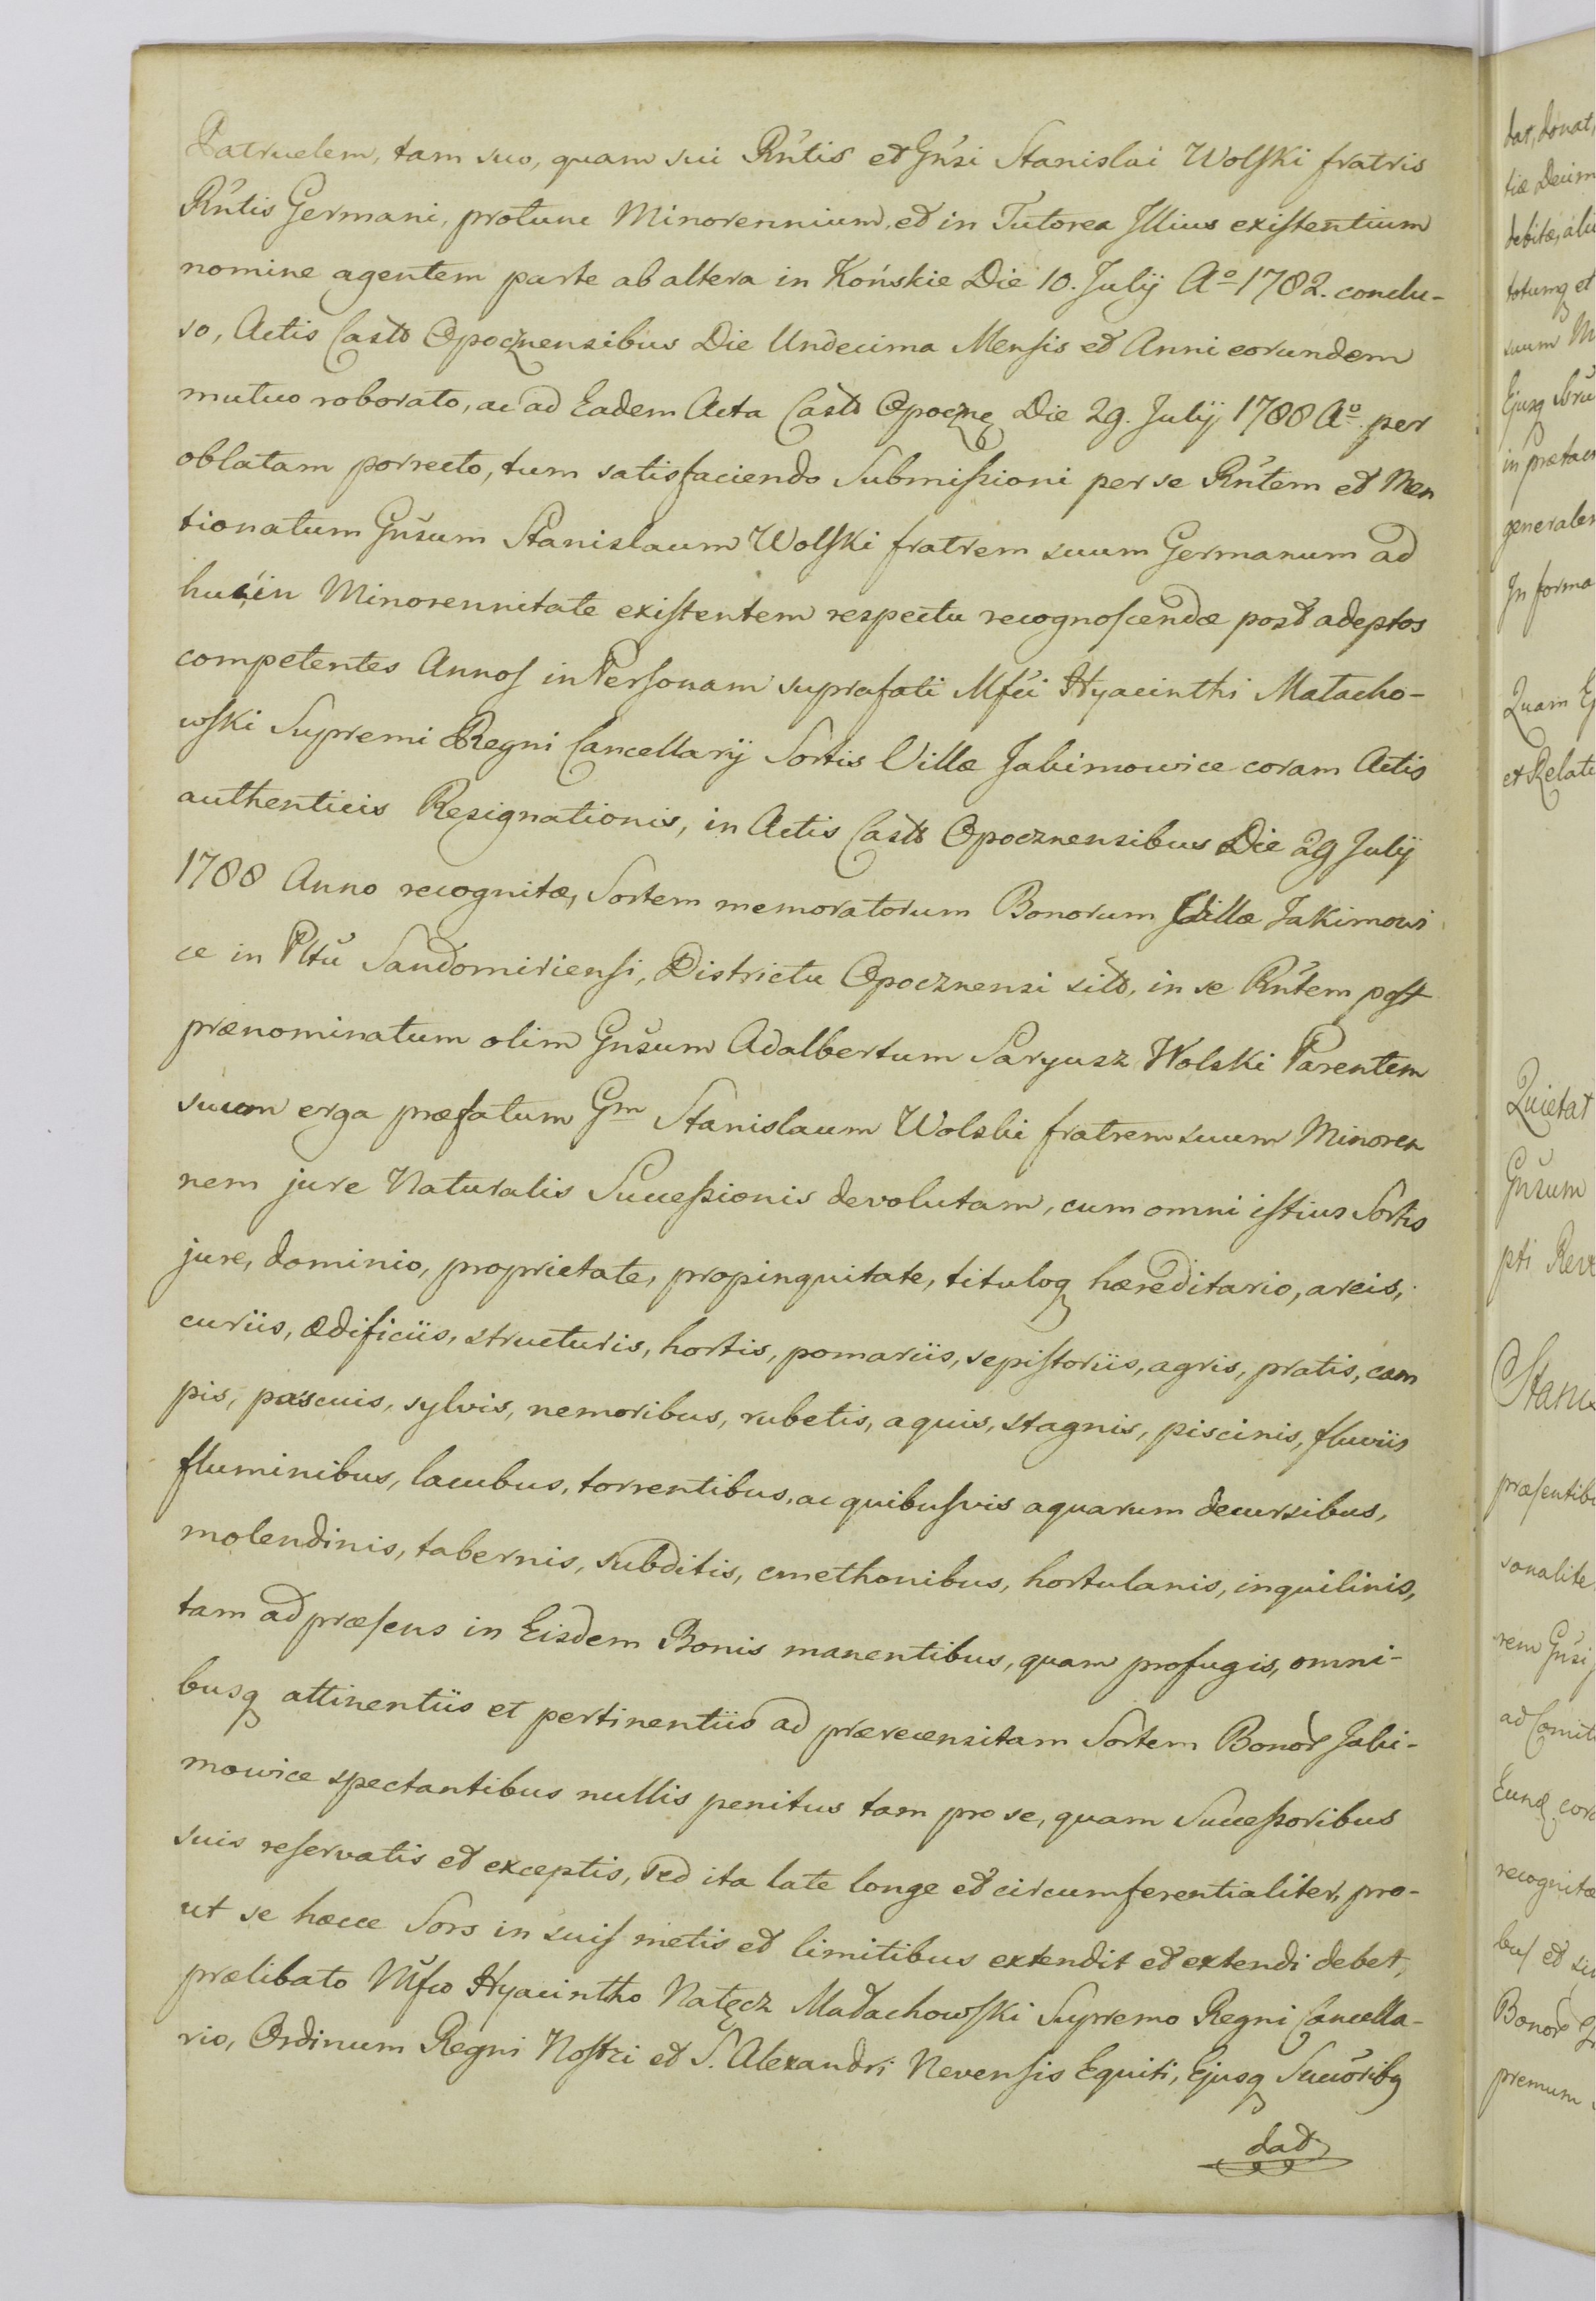 Patruelem, tam suo, quam sui Rńtis et Gńsi Stanislai Wolski fratris
Rńtis Germani, protunc Minorennium, et in Tutorea Illius existentium
nomine agentem parte ab altera in Końskie Die 10. Julij Aº 1782. conclu-
so, Actis Castr Opocznensibus Die Undecima Mensis et Anni eorundem
mutuo roborato, ac ad Eadem Acta Castr Opoczne Die 29. Julij 1788 Aº per
oblatam porrecto, tum satisfaciendo Submissioni per se Rńtem et Men
tionatum Gńsum Stanislaum Wolski fratrem suum Germanum ad
huc in Minorennitate existentem respectu recognoscendæ post adeptos
competentes Annos in Personam suprafati Mfci Hyacinthi Małacho-
wski Supremi Regni Cancellarij Sortis Villæ Jakimowice coram Actis
authenticis Resignationis, in Actis Castr Opocznensibus Die 29 Julij
1788 Anno recognitæ, Sortem memoratorum Bonorum Villæ Jakimowi
ce in Pltŭ Sandomiriensi, Districtu Opocznensi sitō, in se Rńtem post
prænominatum olim Gńsum Adalbertum Saryusz Wolski Parentem
suum erga præfatum Gm Stanislaum Wolski fratrem suum Minoren
nem jure Naturalis Successionis devolutam, cum omni istius Sortis
jure, dominio, proprietate, propinquitate, tituloq hæreditario, areis,
curiis, ædificiis, structuris, hortis, pomariis, sepistoriis, agris, pratis, cam
pis, pascuis, sylvis, nemoribus, rubetis, aquis, stagnis, piscinis, fluviis
fluminibus, lacubus, torrentibus, ac quibusvis aquarum decursibus,
molendinis, tabernis, subditis, cmethonibus, hortulanis, inquilinis,
tam ad præsens in Eisdem Bonis manentibus, quam profugis, omni-
busq attinentiis et pertinentiis ad prærecensitam Sortem Bonor Jaki-
mowice spectantibus nullis penitus tam pro se, quam Successoribus
suis reservatis et exceptis, sed ita late longe et circumferentialiter, pro-
ut se hæcce Sors in suis metis et limitibus extendit et extendi debet,
prælibato Mfco Hyacintho Nałęcz Małachowski Supremo Regni Cancella-
rio, Ordinum Regni Nostri et S. Alexandri Nevensis Equiti, Ejusq Succoribq
dat
dat, donat,
tiæ Decim
debitæ, ali
totumq et
suum M
Ejusq
generalem
In forma
Quam
et Relati
Quietat
Gńsum
pti
Stanis
præsentib
sonalite
rem Gńsi
ad Comit
Eund cora
recognitæ
bus et
Bonor
premum